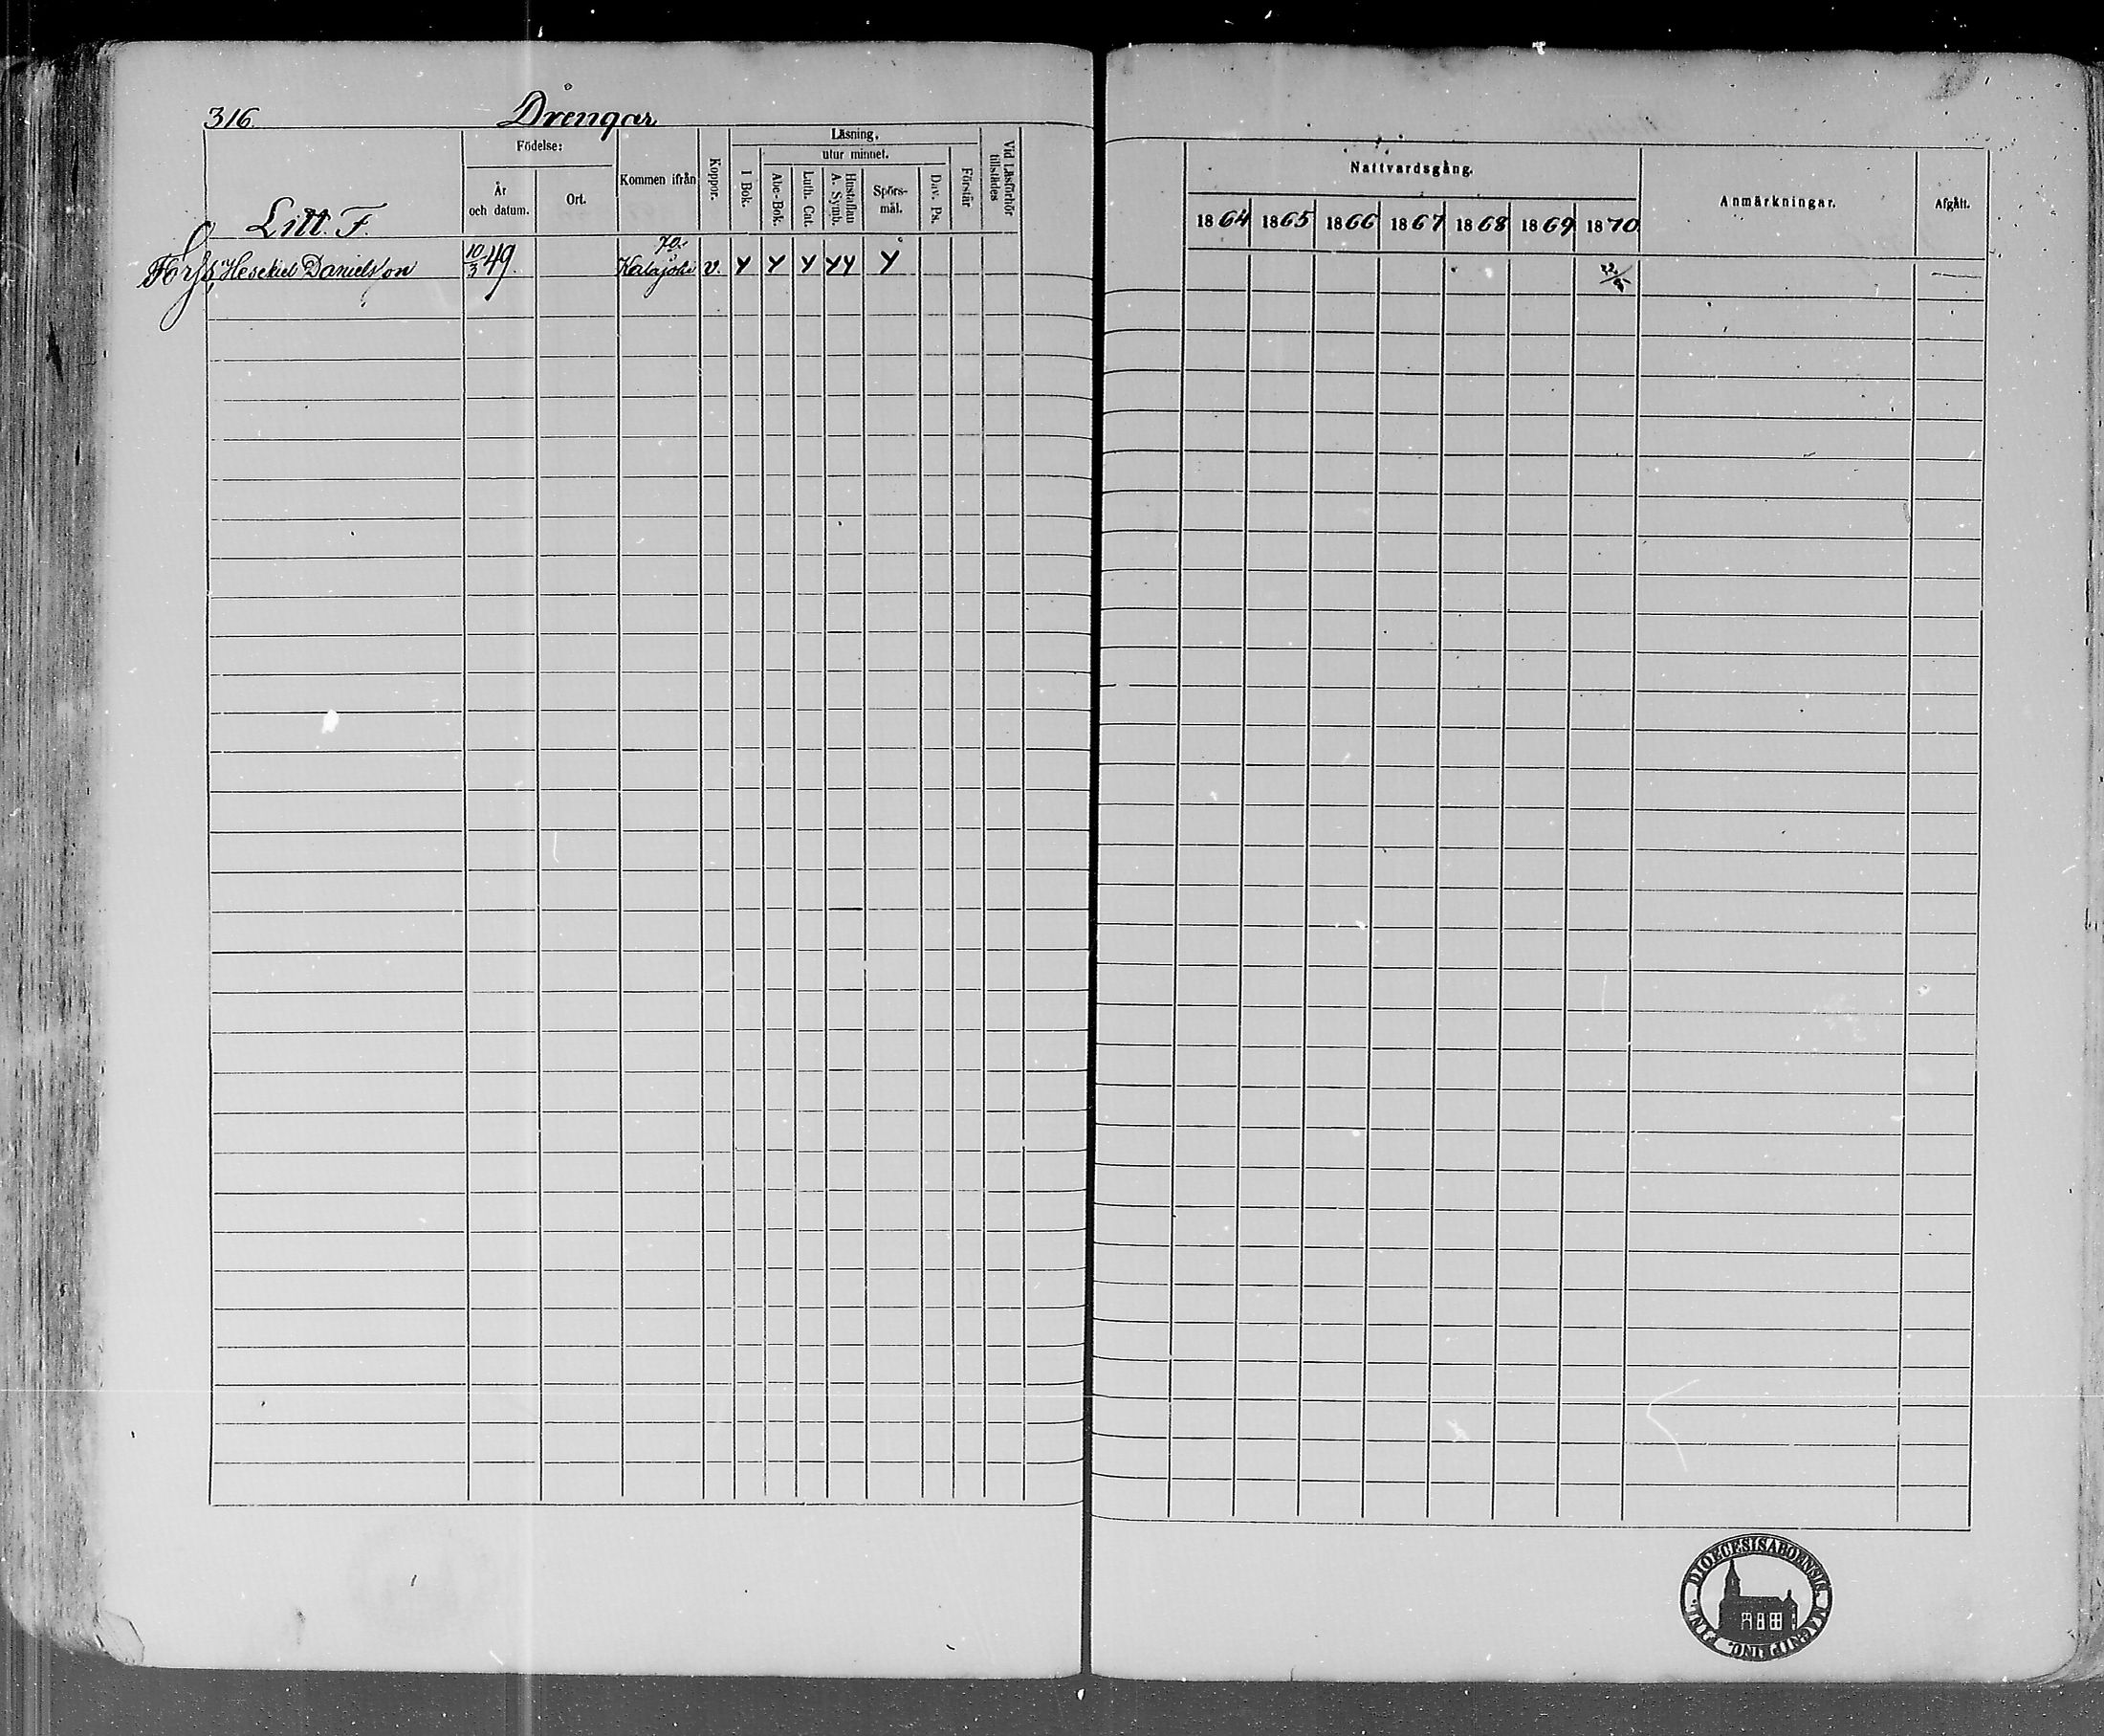 316.
Drengar
Födelse:
År och datum.
Ort.
Kommen ifrån
Koppor.
Läsning.
utur minnet.
I Bok.
Abc-Bok.
Luth. Cat.
Hustaflan A. Symb.
Spörs-mål.
Dav. Ps.
Förstår
Vid Läsförhör tillstädes
Nattvardsgång.
1864 1865 1866 1867 1868 1869 1870
Anmärkningar.
Afgått.
Litt. F.
Hesekiel Danielsson 10/3 49. 70. Kalajoki v.
DIOECESIS ABOENSIS. MAGNI PRINC. FINL.